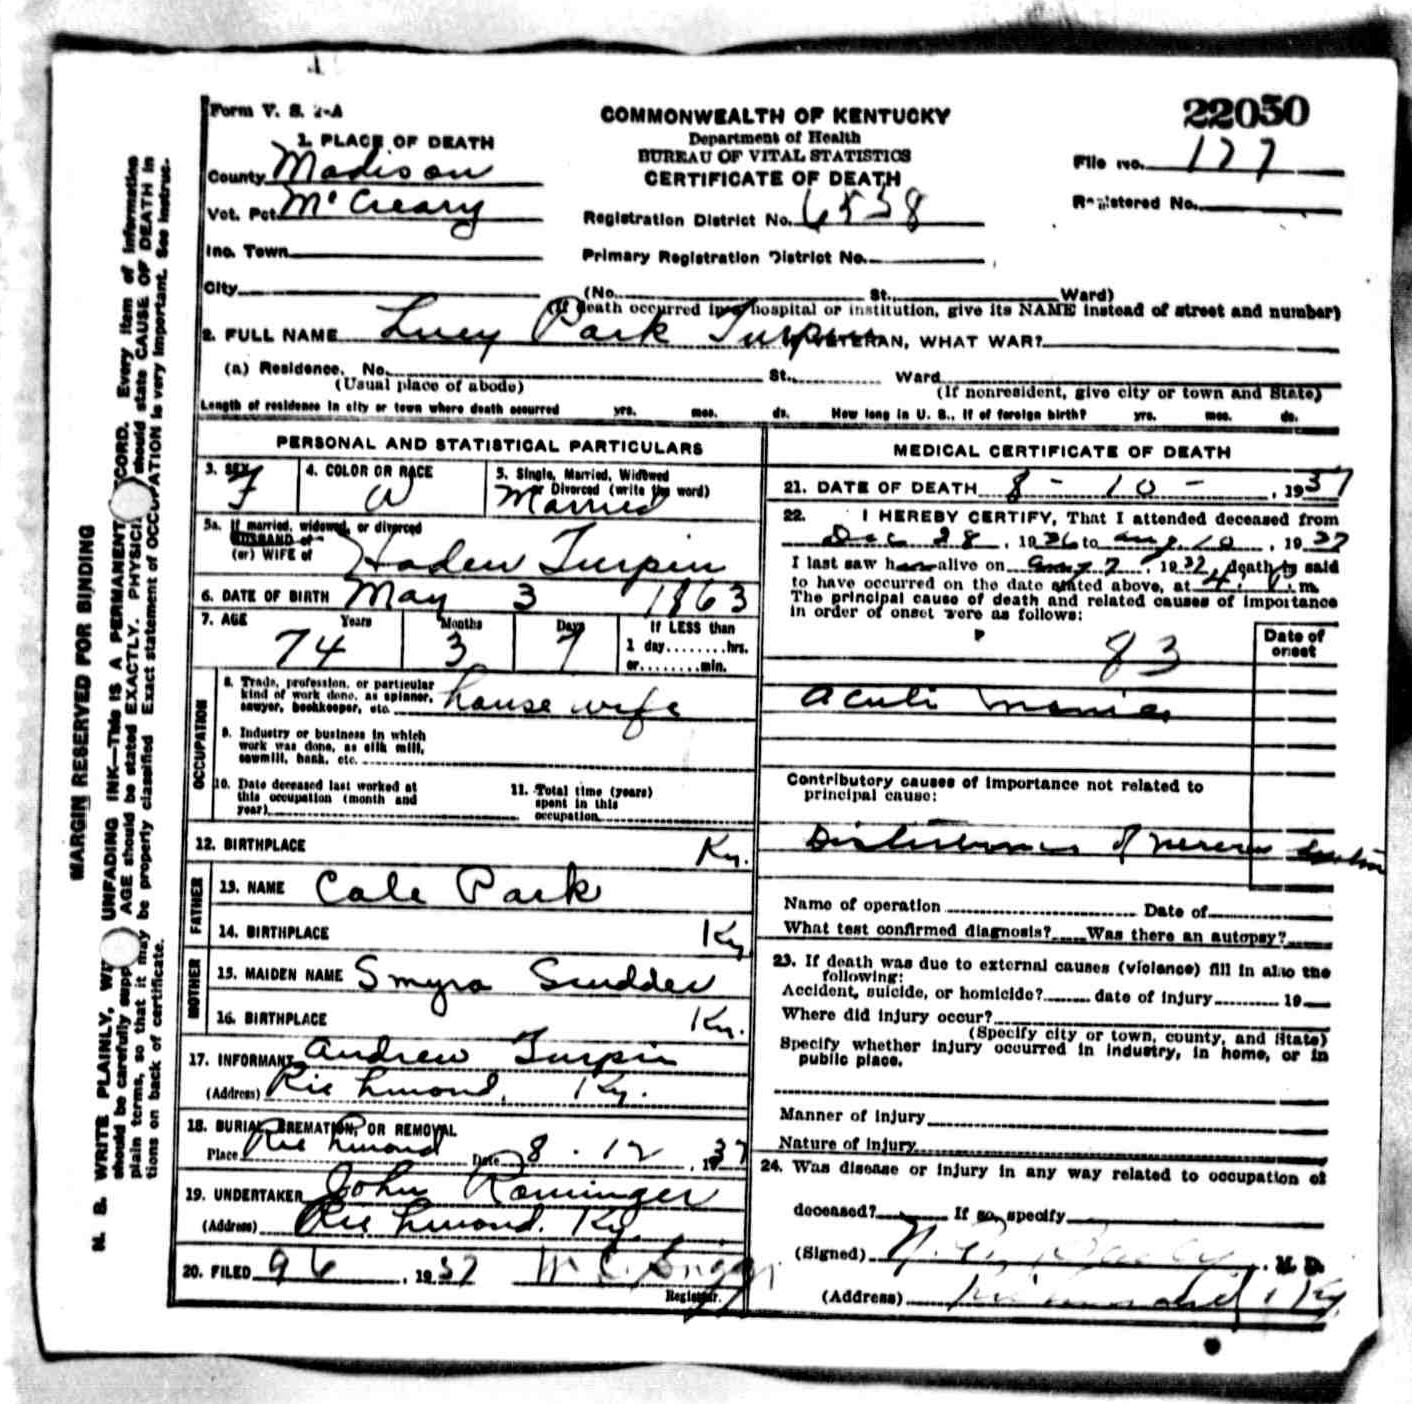 Form V. S. 2-A
COMMONWEALTH OF KENTUCKY
Department of Health
BUREAU OF VITAL STATISTICS
CERTIFICATE OF DEATH
22050
File No. 177
Registered No.
1. PLACE OF DEATH
County Madison
Vot. Pct. McCreary
Inc. Town
City
Registration District No. 6538
Primary Registration District No.
(No. St. Ward)
(If death occurred in a hospital or institution, give its NAME instead of street and number)
2. FULL NAME Lucy Park Turpin VETERAN, WHAT WAR?
(a) Residence. No. St. Ward
(Usual place of abode) (If nonresident, give city or town and State)
Length of residence in city or town where death occurred yrs. mos. ds. How long in U. S., if of foreign birth? yrs. mos. ds.
PERSONAL AND STATISTICAL PARTICULARS
3. SEX F
4. COLOR OR RACE W
5. Single, Married, Widowed
or Divorced (write the word)
Married
5a. If married, widowed, or divorced
HUSBAND of
(or) WIFE of Haden Turpin
6. DATE OF BIRTH May 3 1863
7. AGE Years Months Days If LESS than
74 3 7 1 day........hrs.
or........min.
OCCUPATION
8. Trade, profession, or particular
kind of work done, as spinner,
sawyer, bookkeeper, etc. house wife
9. Industry or business in which
work was done, as silk mill,
sawmill, bank, etc.
10. Date deceased last worked at
this occupation (month and
year)
11. Total time (years)
spent in this
occupation
12. BIRTHPLACE Ky.
FATHER
13. NAME Cale Park
14. BIRTHPLACE Ky
MOTHER
15. MAIDEN NAME Smyra Scudder
16. BIRTHPLACE Ky.
17. INFORMANT Andrew Turpin
(Address) Richmond, Ky.
18. BURIAL, CREMATION, OR REMOVAL
Place Richmond Date 8 - 12, 1937
19. UNDERTAKER John Rominger
(Address) Richmond, Ky.
20. FILED 9 6, 1937
Registrar.
MEDICAL CERTIFICATE OF DEATH
21. DATE OF DEATH 8 - 10 -, 1937
22. I HEREBY CERTIFY, That I attended deceased from
Dec 28, 1936 to Aug 10, 1937
I last saw h alive on Aug 7, 1937, death is said
to have occurred on the date stated above, at 4 P. m.
The principal cause of death and related causes of importance
in order of onset were as follows:
Date of
onset
83
Acute Mania
Contributory causes of importance not related to
principal cause:
Disturbances of nervous system
Name of operation Date of
What test confirmed diagnosis? Was there an autopsy?
23. If death was due to external causes (violence) fill in also the
following:
Accident, suicide, or homicide? date of injury 19
Where did injury occur?
(Specify city or town, county, and State)
Specify whether injury occurred in industry, in home, or in
public place.
Manner of injury
Nature of injury
24. Was disease or injury in any way related to occupation of
deceased? If so, specify
(Signed) M. D.
(Address) Richmond, Ky.
MARGIN RESERVED FOR BINDING
N. B. WRITE PLAINLY, UNFADING INK—THIS IS A PERMANENT RECORD. Every item of information
should be carefully AGE should be stated EXACTLY. should state CAUSE OF DEATH in
plain terms, so that it may be properly classified. Exact statement of OCCUPATION is very important. See instruc-
tions on back of certificate.